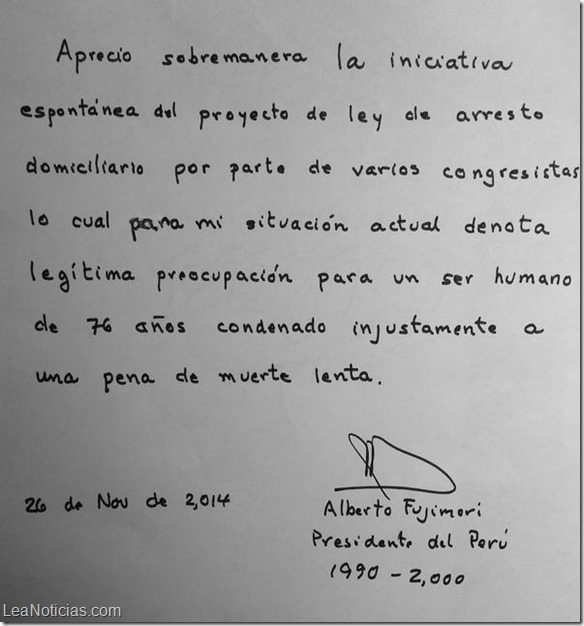 Aprecio sobremanera la iniciativa
espontánea del proyecto de ley de arresto
domiciliario por parte de varios congresistas
lo cual para mi situación actual denota
legítima preocupación para un ser humano
de 76 años condenado injustamente a
una pena de muerte lenta.
26 de Nov de 2,014
Alberto Fujimori
Presidente del Perú
1990 - 2,000
LeaNoticias.com